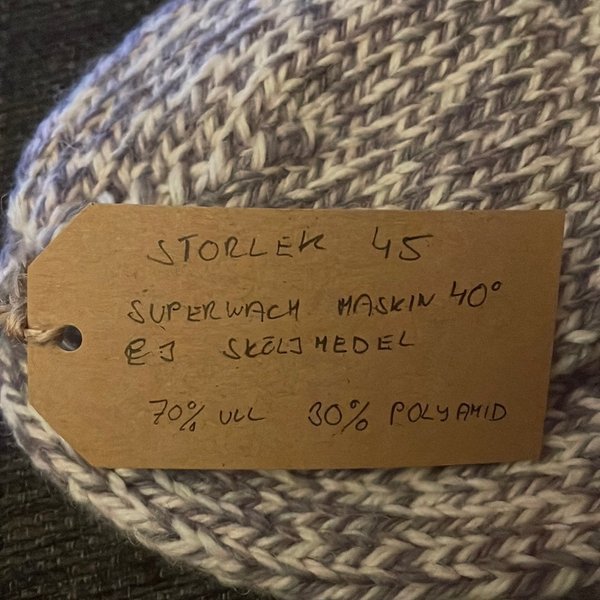 STORLEK 45
SUPERWACH MASKIN 40°
EJ SKÖLJMEDEL
70% ULL 30% POLYAMID